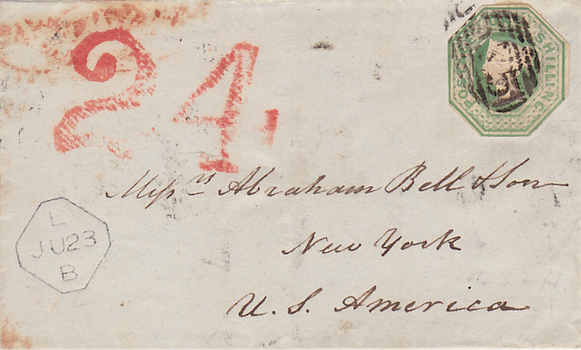 24
SHILLING
Messrs Abraham Bell & Son
New York
U. S. America
L
JU23
B